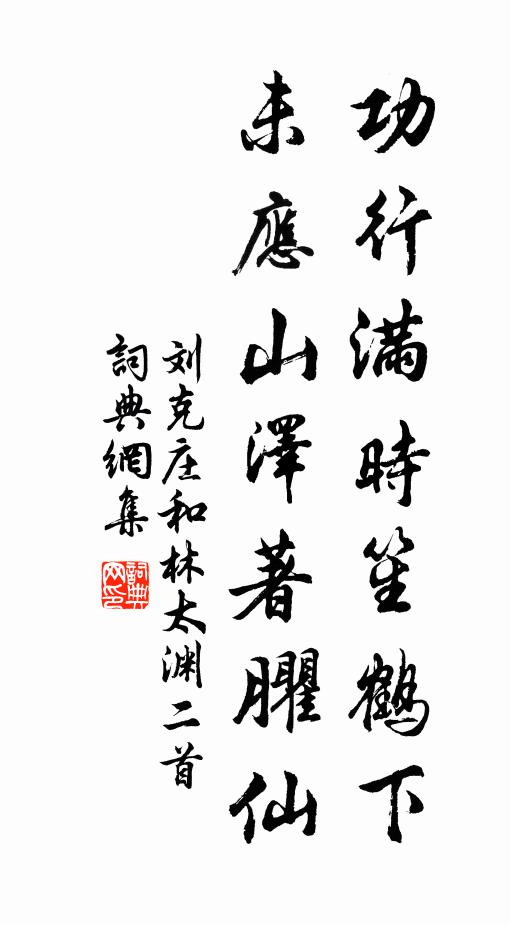 功行滿時笙鶴下
未應山澤著臞仙
刘克庄和林太渊二首
詞典網集
詞典网印